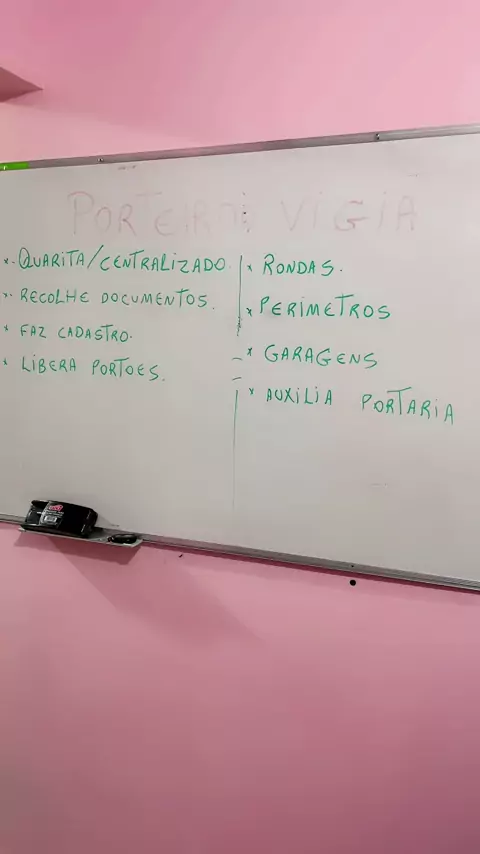 PORTEIRO: VIGIA
QUARITA/CENTRALIZADO.
RECOLHE DOCUMENTOS.
FAZ CADASTRO.
LIBERA PORTOES.
RONDAS.
PERIMETROS
GARAGENS
AUXILIA PORTARIA